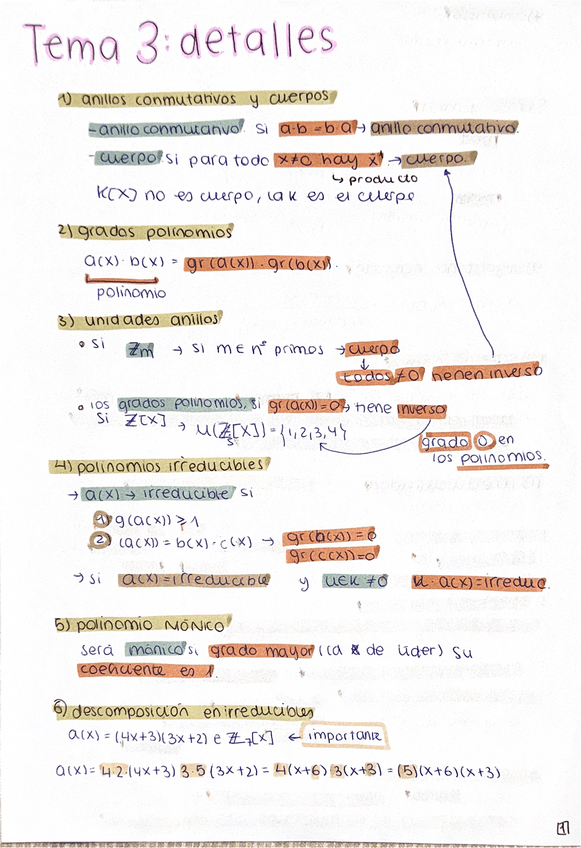 Tema 3: detalles
1) anillos conmutativos y cuerpos
- anillo conmutativo si a·b = b·a → anillo conmutativo.
- cuerpo si para todo x≠0 hay x⁻¹ → cuerpo.
↳ producto
K[X] no es cuerpo, la K es el cuerpo
2) grados polinomios
a(x)·b(x) = gr(a(x))·gr(b(x)).
polinomio
3) unidades anillos
• si ℤm → si m ∈ nº primos → cuerpo
↓
todos ≠0 tienen inverso
• los grados polinomios, si gr(a(x))=0 → tiene inverso
si ℤ[X] → U(ℤ5[X]) = {1,2,3,4}
grado 0 en
los polinomios.
4) polinomios irreducibles
→ a(x) → irreducible si
1 g(a(x)) ≥ 1
2 (a(x)) = b(x)·c(x) → gr(b(x))=0
gr(c(x))=0
→ si a(x)=irreducible y u∈K ≠0 K·a(x)=irreduc.
5) polinomio MÓNICO
será mónico si grado mayor (la x de líder) su
coeficiente es 1.
6) descomposición en irreducibles
a(x) = (4x+3)(3x+2) e ℤ7[x] ← importante
a(x) = 4·2·(4x+3) 3·5 (3x+2) = 4(x+6)·3(x+3) = (5)(x+6)(x+3)
1